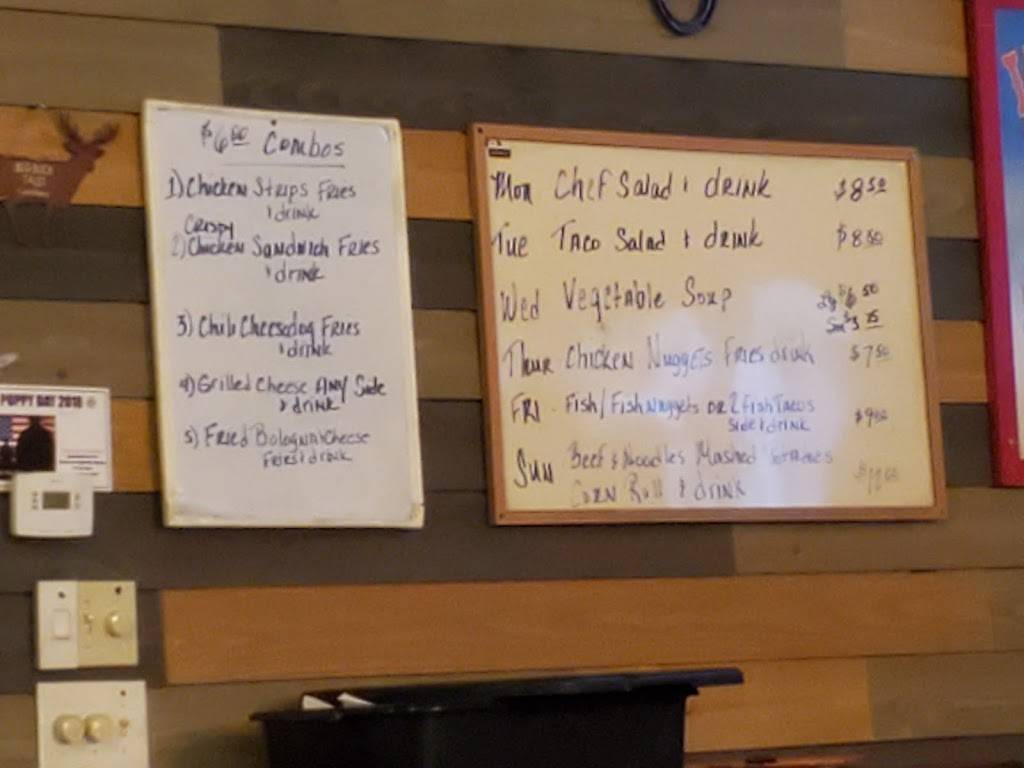 $6.00 Combos
1) Chicken Strips Fries
& drink
Crispy
2) Chicken Sandwich Fries
& drink
3) Chili Cheesedog Fries
& drink
4) Grilled Cheese Any Side
& drink
5) Fried Bologna/Cheese
Fries & drink
Mon Chef Salad & drink $8.50
Tue Taco Salad & drink $8.50
Wed Vegetable Soup Lg $6.50
Sm $3.75
Thur Chicken Nuggets Fries drink $7.50
FRI - Fish/Fish Nuggets or 2 Fish Tacos $9.00
Side & drink
Sun Beef & Noodles Mashed Potatoes
Corn Roll & drink
POPPY DAY 2018